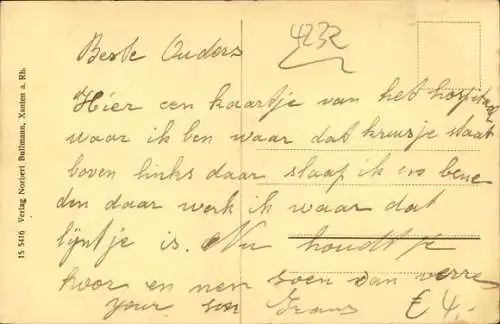 4232
Beste Ouders
Hier een kaartje van het hospitaal
waar ik ben waar dat kreusje staat
boven links daar slaap ik en bene
den daar werk ik waar dat
lijntje is. Nu houdt je
hoor en nen soen van verre
your son Frans
£ 4.-
15 5416 Verlag Norbert Bullmann, Xanten a. Rh.